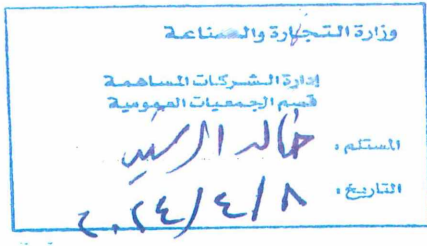 وزارة التجارة والصناعة
إدارة الشركات المساهمة
قسم الجمعيات العمومية
المستلم : خالد الرشيد
التاريخ : ٢٠٢٤/٤/٨